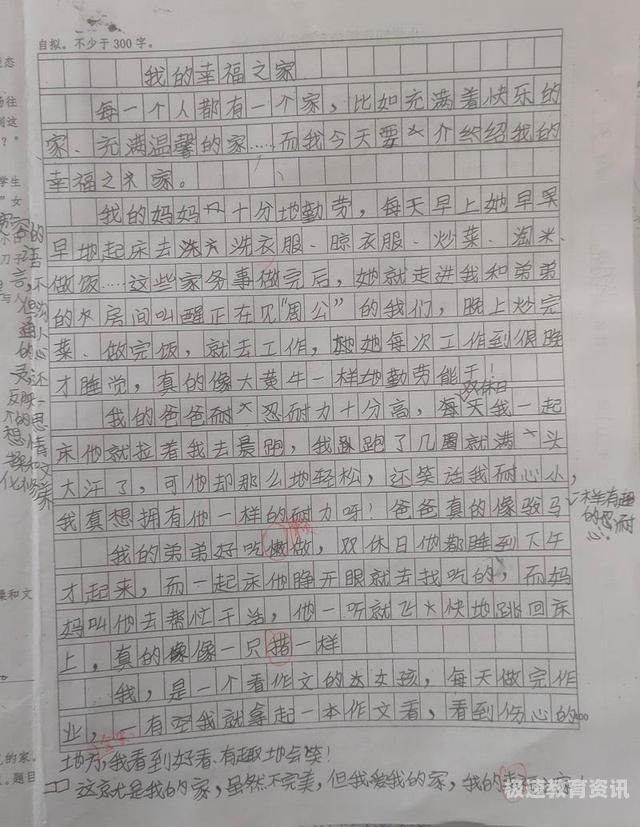 自拟。不少于300字。
我的幸福之家
每一个人都有一个家，比如充满着快乐的
家、充满温馨的家……而我今天要介绍我的
幸福之家。
我的妈妈十分地勤劳，每天早上她早早
早地起床去洗衣服、晾衣服、炒菜、淘米、
做饭……这些家务事做完后，她就走进我和弟弟
的房间叫醒正在见“周公”的我们，晚上炒完
菜、做完饭，就去工作，她每次工作到很晚
才睡觉，真的像大黄牛一样地勤劳能干！
双休日
我的爸爸忍耐力十分高，每天我一起
床他就拉着我去晨跑，我跑了几圈就满头
大汗了，可他却那么地轻松，还笑话我耐心小，
我真想拥有他一样的耐力呀！爸爸真的像骏马
一样有趣的忍耐心！
我的弟弟好吃懒做，双休日他都睡到下午
才起来，而一起床他睁开眼就去找吃的，而妈
妈叫他去帮忙干活，他一听就飞快地跳回床
上，真的像一只猪一样
我，是一个看作文的女孩，每天做完作
业，一有空我就拿起一本作文看，看到伤心的
400
地方，我看到好看、有趣地会笑！
这就是我的家，虽然不完美，但我爱我的家，我的幸福之家！
极速教育资讯